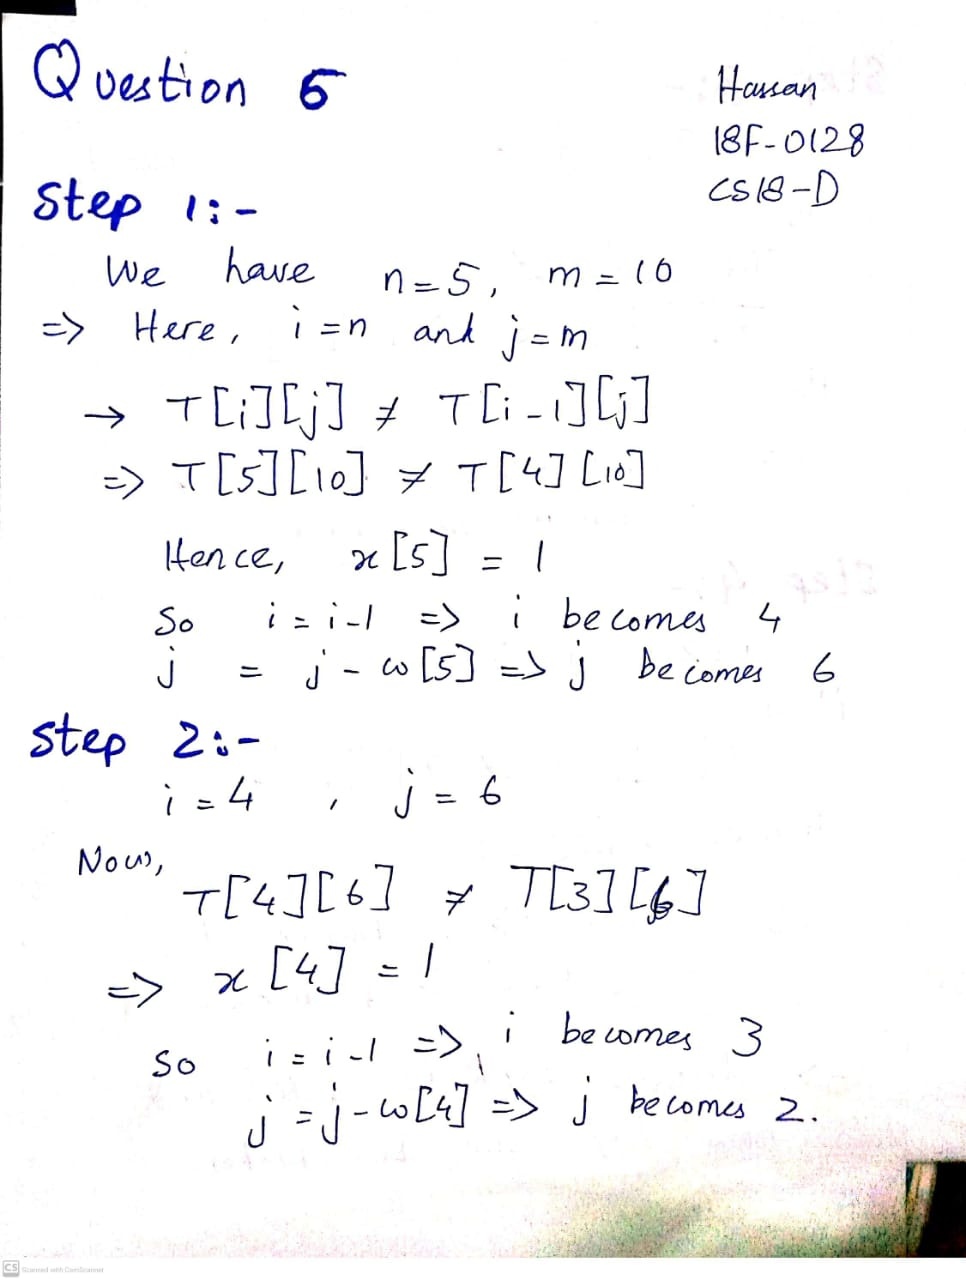 Question 5
Hassan
18F-0128
CS18-D
Step 1:-
We have n=5, m=10
=> Here, i=n and j=m
→ T[i][j] ≠ T[i-1][j]
=> T[5][10] ≠ T[4][10]
Hence, x[5] = 1
So i=i-1 => i becomes 4
j = j-w[5] => j becomes 6
Step 2:-
i=4 , j=6
Now,
T[4][6] ≠ T[3][6]
=> x[4] = 1
So i=i-1 => i becomes 3
j=j-w[4] => j becomes 2.
CS Scanned with CamScanner